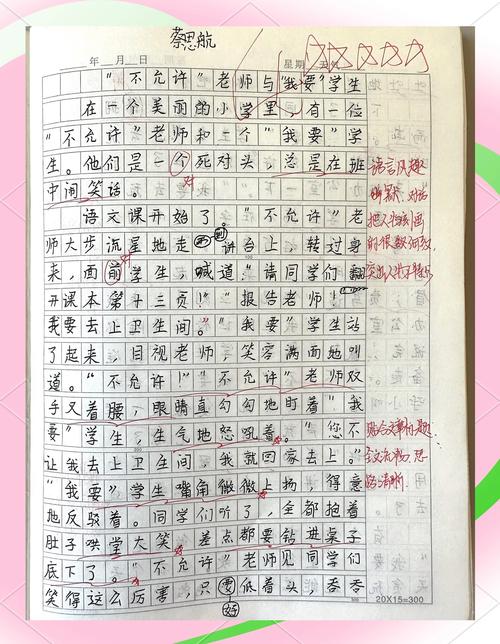 蔡思航
年 月 日 星期 天气
“不允许”老师与“我要”学生
在一个美丽的小学里，有一位
“不允许”老师和一个“我要”学
生。他们是一个死对头，总是在班
对
中闹笑话。
语文课开始了。“不允许”老
师大步流星地走到讲台上，转过身
来，面前学生，喊道：“请同学们翻
开课本第十三页！”“报告老师！
我要去上卫生间。”“我要”学生站
了起来，目视老师，笑容满面地叫
道。“不允许！”“不允许”老师双
手叉着腰，眼睛直勾勾地盯着“我
要”学生，生气地怒吼着。“您不
让我去上卫生间，我就回家去上。”
“我要”学生嘴角微微上扬，得意
地反驳着。同学们听了，全都抱着
肚子哄堂大笑，差点都要钻进桌子
底下了。“不允许”老师见同学们
笑得这么厉害，只要低着头，吞吞
好
20X15=300
语言风趣
幽默，对话
把人物刻画
突出人物特点
贴合文章的题
全文流畅，思
路清晰。